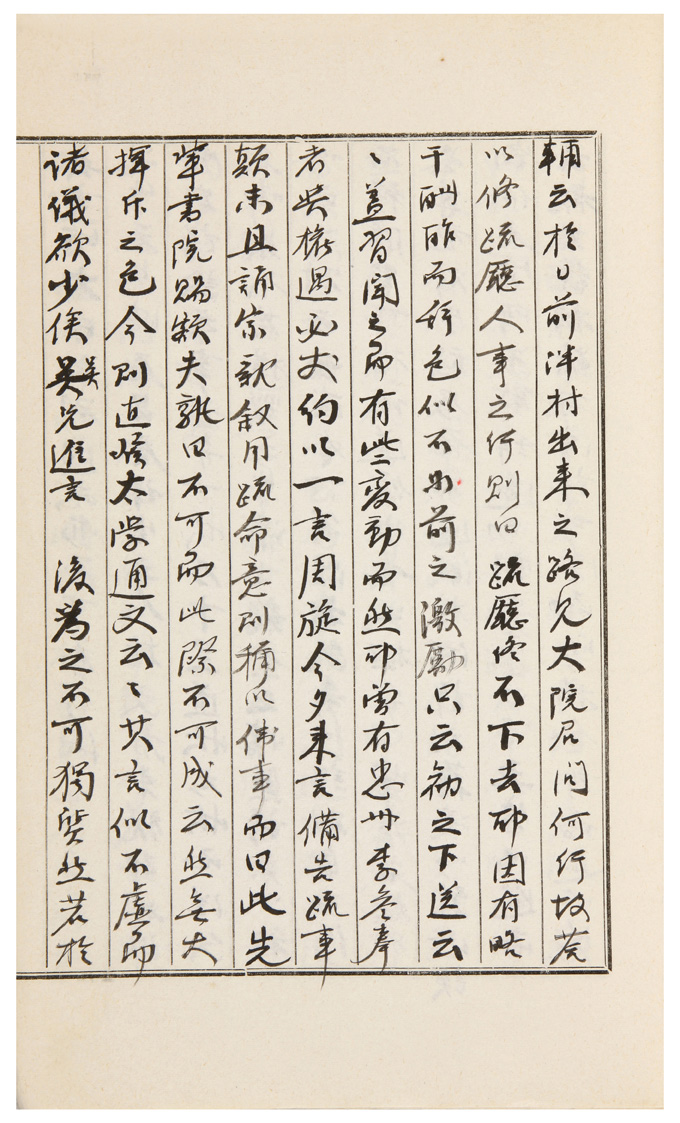 輔云於日前泮村出来之路見大院君問何行故答
以修疏廳人事之行則曰疏廳修不下去耶因有略
干酬酢而辞色似不如前之激勵只云勿之下送云
〻盖習聞之而有些変動而然耶曽有忠州李參奉
者其權遇必丈約以一言周旋今夕来言備告疏事
顛末且誦宗親叙用疏命意則稱以偉事而曰此先
華書院賜額夫孰曰不可而此際不可成云然無大
揮斥之色今則直嗾太学通文云〻其言似不虚而
諸儀欲少俟吳吳兄進言 後為之不可獨質然若於